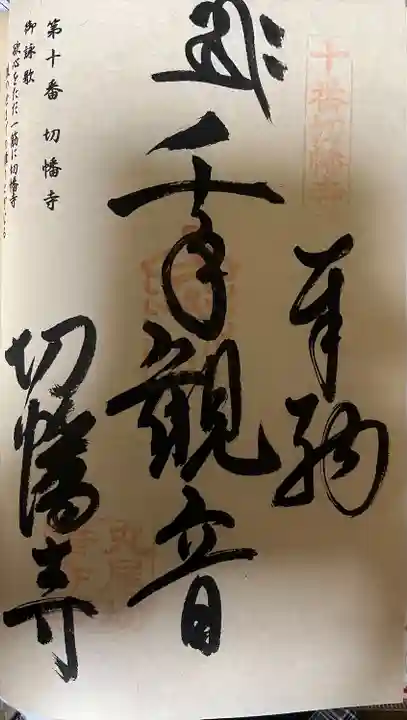 十番切幡寺
奉納
千手観音
切幡寺
第十番 切幡寺
御詠歌
欲心をただ一筋に切幡寺